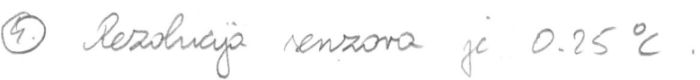 4. Rezolucija senzora je 0.25 °C.